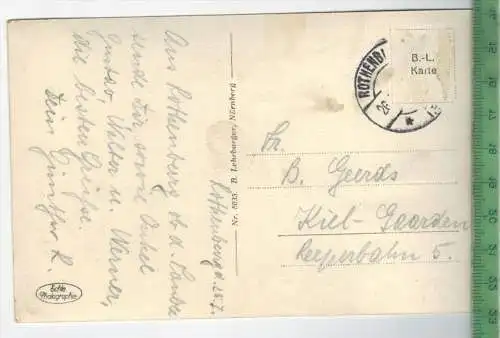 Aus Rothenburg ob d. Tauber
sende Dir, sowie Onkel
Gustav, Walter u. Werner,
die besten Grüße.
Dein Günther R.
Rothenburg d. 25.7.
Nr. 8035 B. Lehrburger, Nürnberg
Echte
Photographie
ROTHENB
26
B.-L.
Karte
Fr.
B. Geerds
Kiel-Gaarden
Reeperbahn 5.